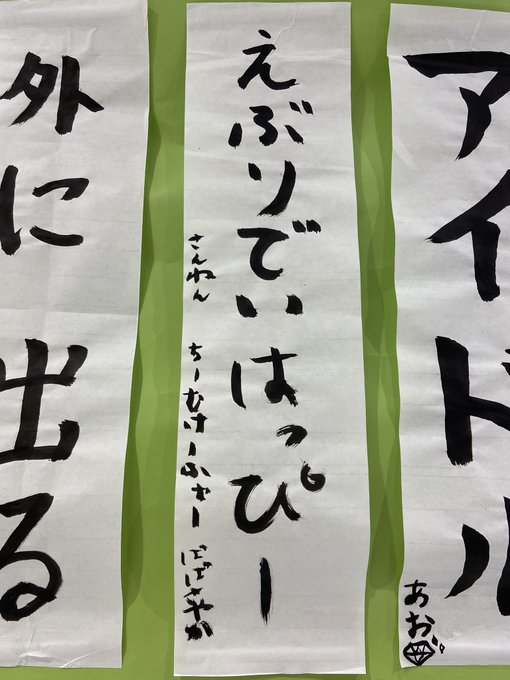 アイドル
あお
えぶりでいはっぴー
さんねん ちーむけーふぉー ばばさやか
外に出る